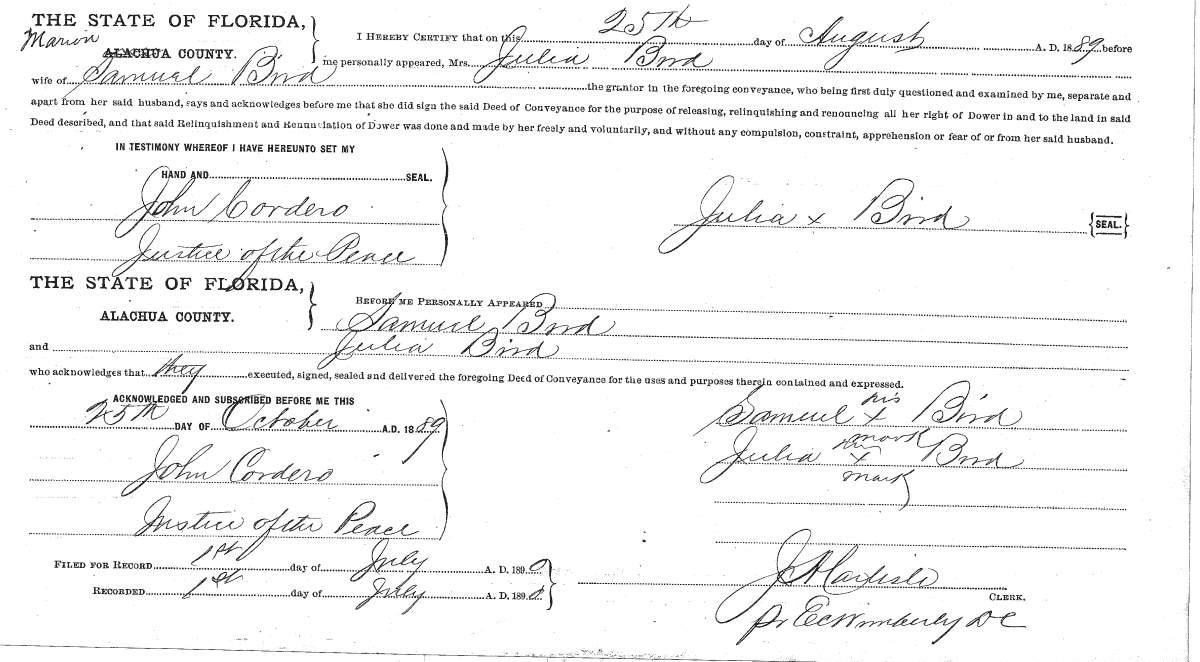 THE STATE OF FLORIDA,
Marion
ALACHUA COUNTY.
I HEREBY CERTIFY that on this 25th day of August A. D. 1889 before
me personally appeared, Mrs. Julia Bird
wife of Samuel Bird the grantor in the foregoing conveyance, who being first duly questioned and examined by me, separate and
apart from her said husband, says and acknowledges before me that she did sign the said Deed of Conveyance for the purpose of releasing, relinquishing and renouncing all her right of Dower in and to the land in said
Deed described, and that said Relinquishment and Renunciation of Dower was done and made by her freely and voluntarily, and without any compulsion, constraint, apprehension or fear of or from her said husband.
IN TESTIMONY WHEREOF I HAVE HEREUNTO SET MY
HAND AND SEAL.
John Cordero
Julia x Bird {SEAL.}
Justice of the Peace
THE STATE OF FLORIDA,
ALACHUA COUNTY.
BEFORE ME PERSONALLY APPEARED
Samuel Bird
and Julia Bird
who acknowledges that they executed, signed, sealed and delivered the foregoing Deed of Conveyance for the uses and purposes therein contained and expressed.
ACKNOWLEDGED AND SUBSCRIBED BEFORE ME THIS
25th DAY OF October A.D. 1889
John Cordero
Justice of the Peace
his
Samuel x Bird
mark
her
Julia x Bird
mark
FILED FOR RECORD 1st day of July A. D. 1890
RECORDED 1st day of July A. D. 1890
J A Carlisle
CLERK.
pr E C Wimberly DC